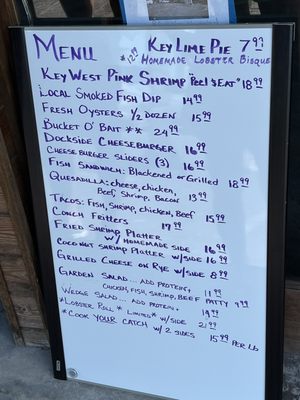 MENU
KEY LIME PIE 7.99
12.99 HOMEMADE LOBSTER BISQUE
KEY WEST PINK SHRIMP "PEEL & EAT" 18.99
LOCAL SMOKED FISH DIP 14.99
FRESH OYSTERS 1/2 DOZEN 15.99
BUCKET O' BAIT ** 24.99
DOCKSIDE CHEESEBURGER 16.99
CHEESEBURGER SLIDERS (3) 16.99
FISH SANDWICH: BLACKENED or GRILLED 18.99
QUESADILLA: CHEESE, CHICKEN,
BEEF, SHRIMP, BACON 13.99
TACOS: FISH, SHRIMP, CHICKEN, BEEF 15.99
CONCH FRITTERS 17.99
FRIED SHRIMP PLATTER
W/ HOMEMADE SIDE 16.99
COCONUT SHRIMP PLATTER W/SIDE 16.99
GRILLED CHEESE ON RYE W/SIDE 8.99
GARDEN SALAD... ADD PROTEIN,
CHICKEN, FISH, SHRIMP, BEEF PATTY 9.99
11.99
WEDGE SALAD... ADD PROTEIN,
*LOBSTER ROLL * LIMITED* W/SIDE 21.99
*COOK YOUR CATCH W/ 2 SIDES 15.99 PER LB